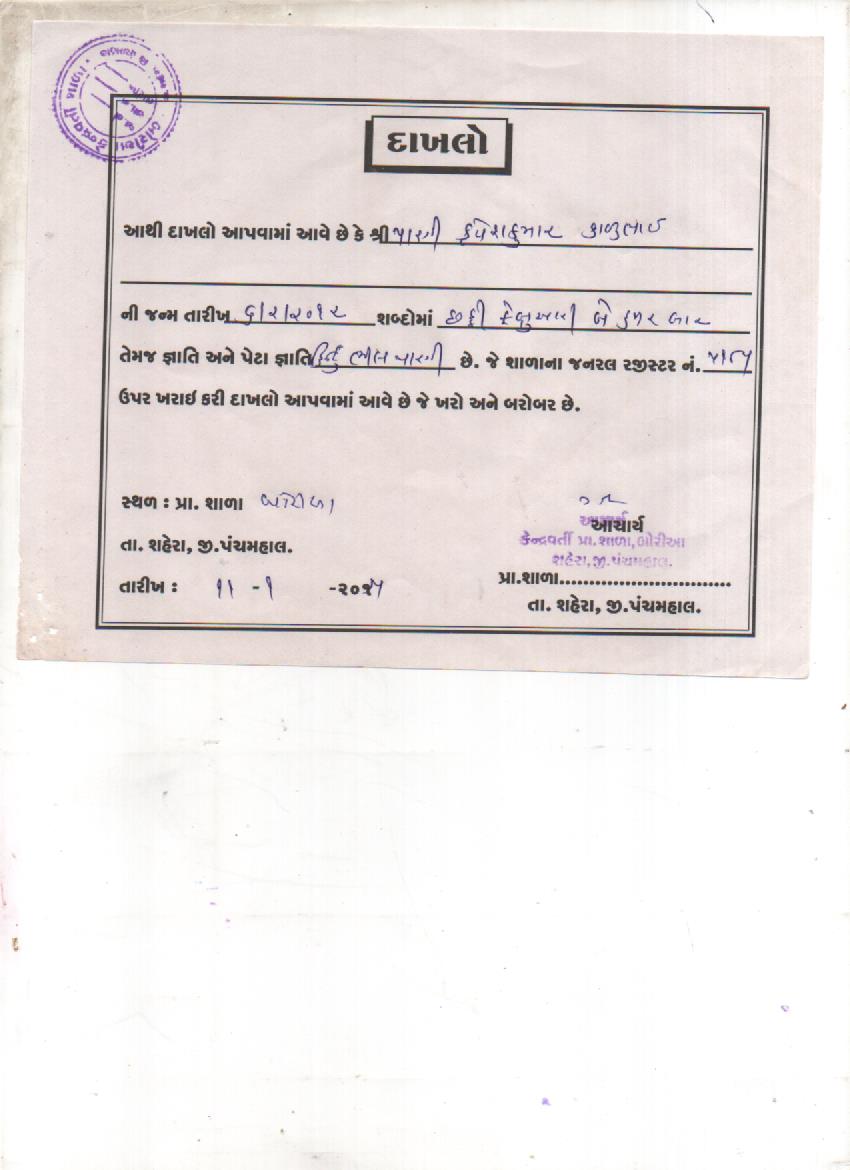 દાખલો
આથી દાખલો આપવામાં આવે છે કે શ્રી પારગી કાળુભાઈ
ની જન્મ તારીખ ૬/૨/૨૦૧૨ શબ્દોમાં છઠ્ઠી ફેબ્રુઆરી બે હજાર બાર
તેમજ જ્ઞાતિ અને પેટા જ્ઞાતિ હિન્દુ ભીલ પારગી છે. જે શાળાના જનરલ રજીસ્ટર નં.
ઉપર ખરાઇ કરી દાખલો આપવામાં આવે છે જે ખરો અને બરોબર છે.
સ્થળ : પ્રા. શાળા બોરીઆ
આચાર્ય
આચાર્ય
કેન્દ્રવર્તી પ્રા.શાળા,બોરીઆ
તા. શહેરા, જી.પંચમહાલ.
શહેરા,જી.પંચમહાલ.
તારીખ : ૧૧ -૧ -૨૦૧૫
પ્રા.શાળા.............................
તા. શહેરા, જી.પંચમહાલ.